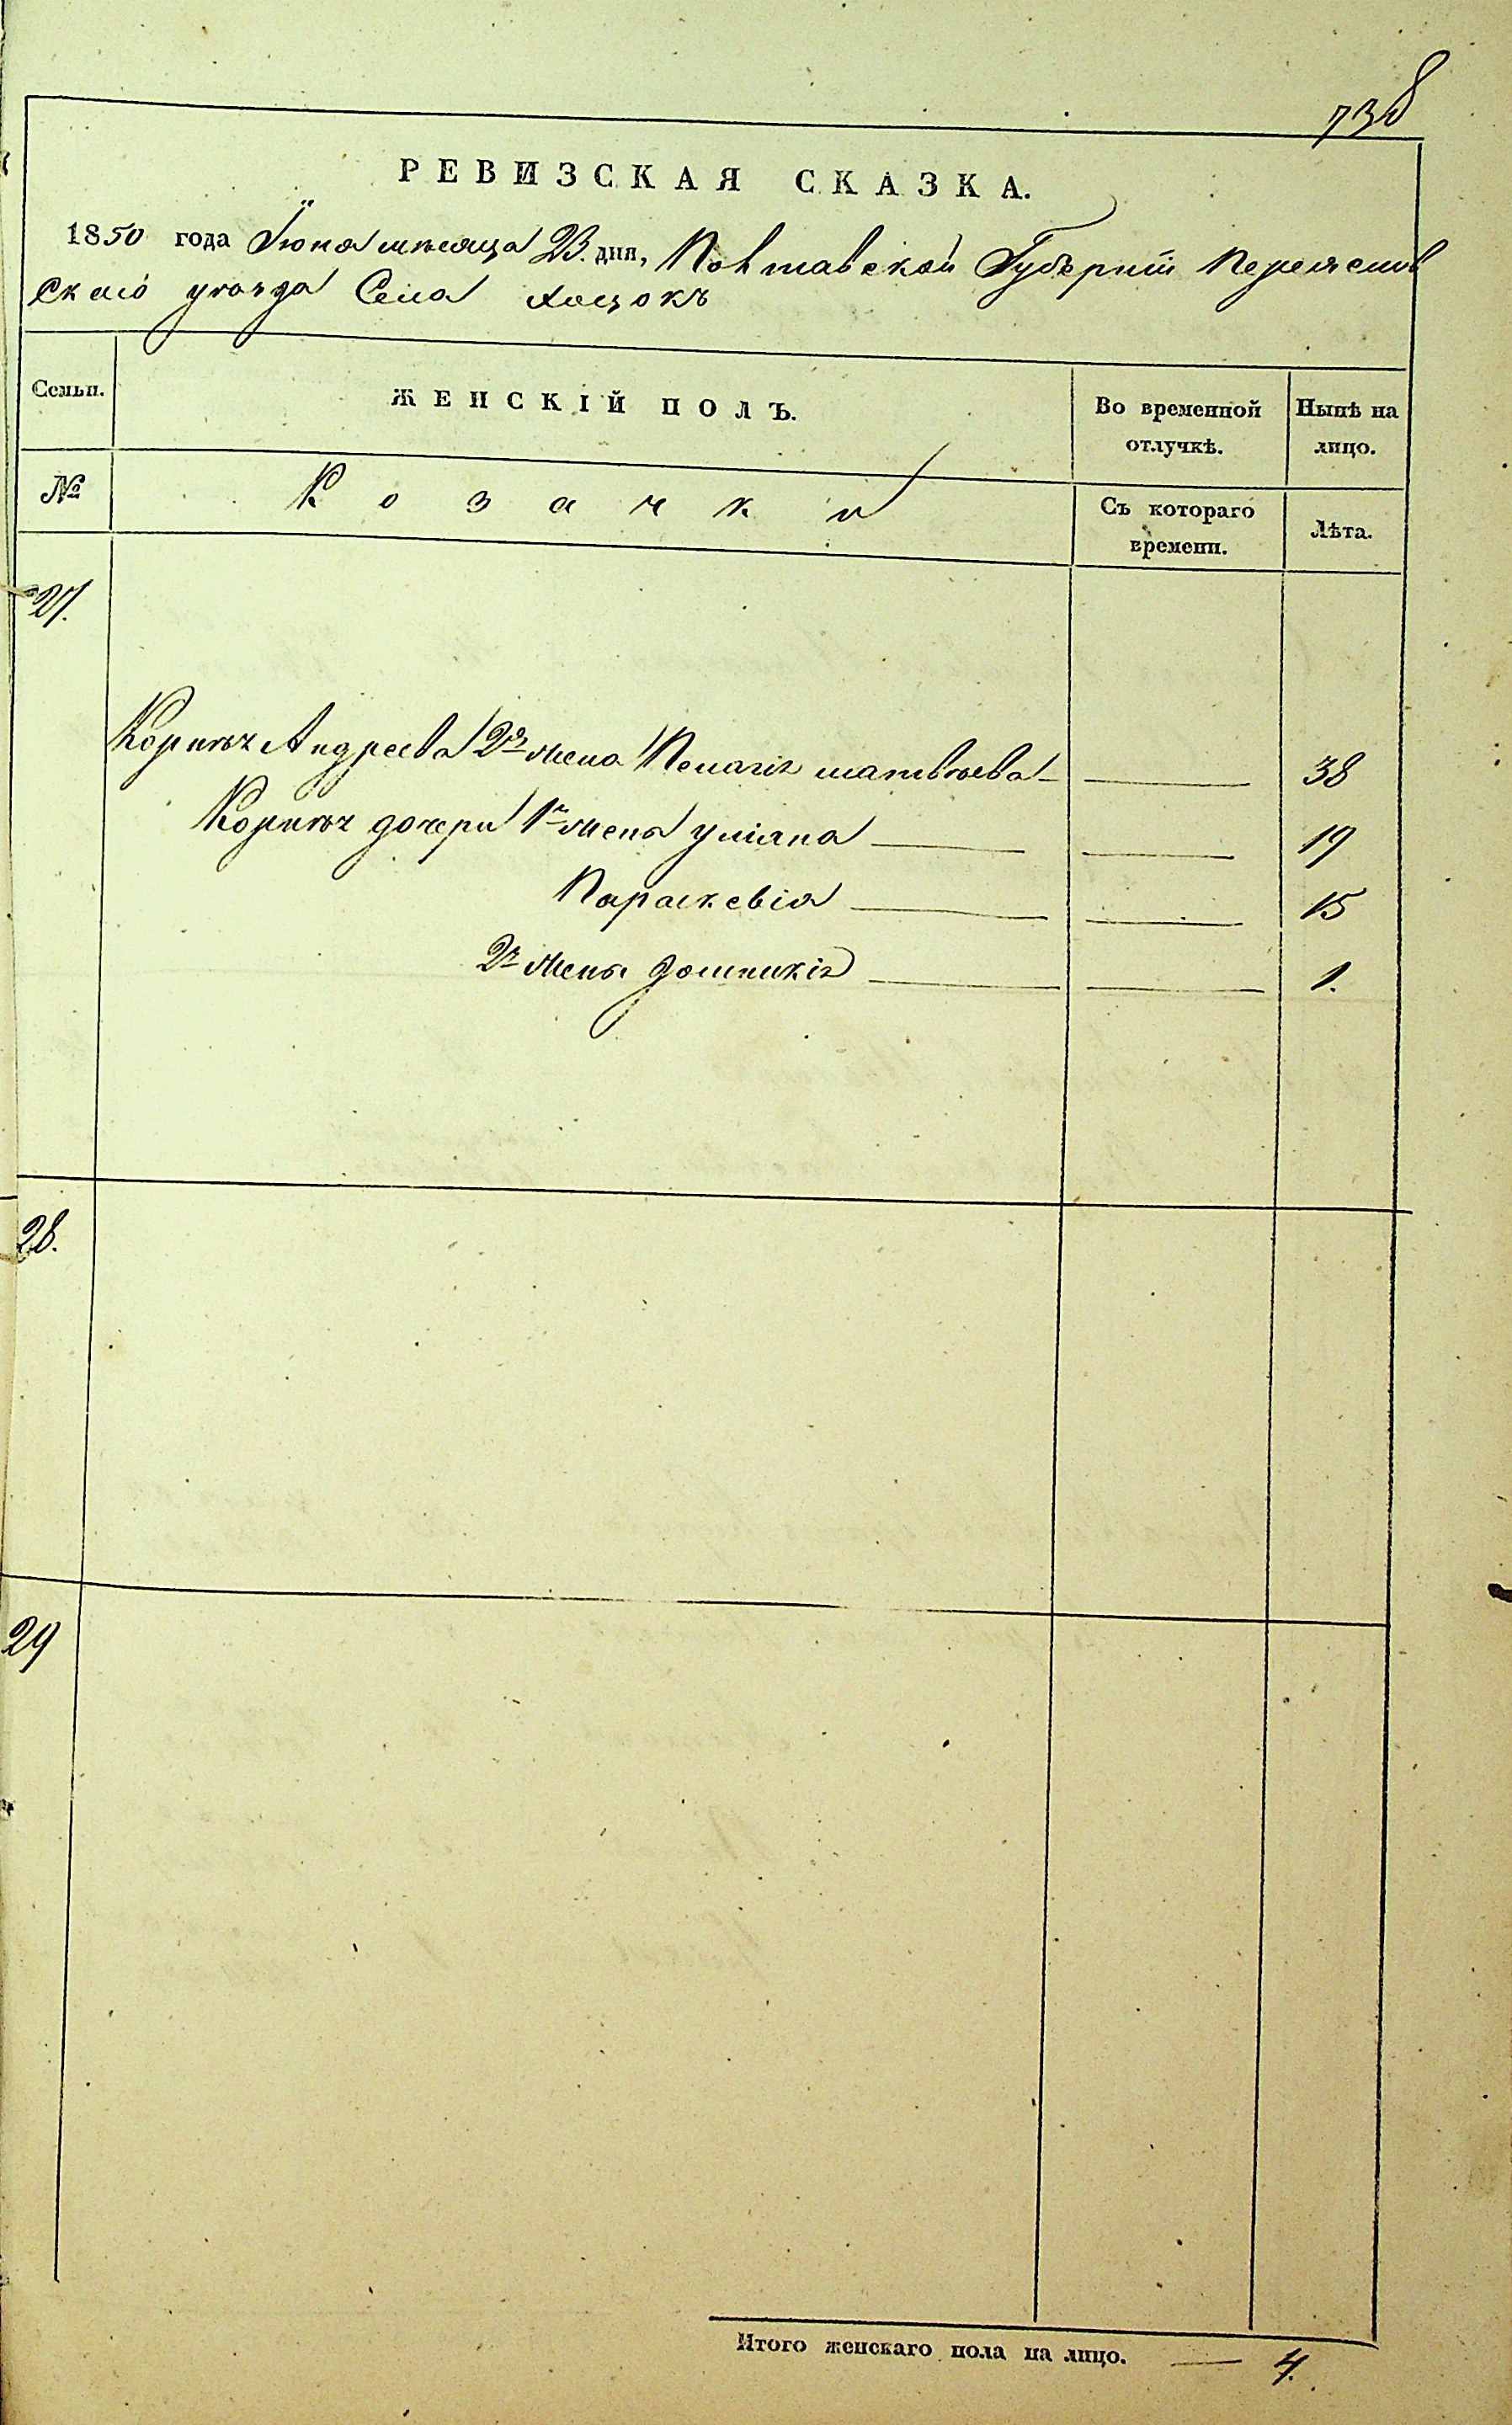 738
РЕВИЗСКАЯ СКАЗКА.
1850 года Іюня мѣсяца 23. дня, Полтавской Губерніи Переяслов
скаго уѣзда Села Хоцокъ
Семьи. ЖЕНСКІЙ ПОЛЪ. Во временной отлучкѣ. Нынѣ на лицо.
№ Козачки Съ котораго времени. Лѣта.
27.
Корнѣя Андреева 2я жена Пелагія Матвѣева 38
Корнѣя дочери 1й жены Уліяна 19
Параскевія 15
2й жены Домникія 1.
28.
29
Итого женскаго пола на лицо. 4.